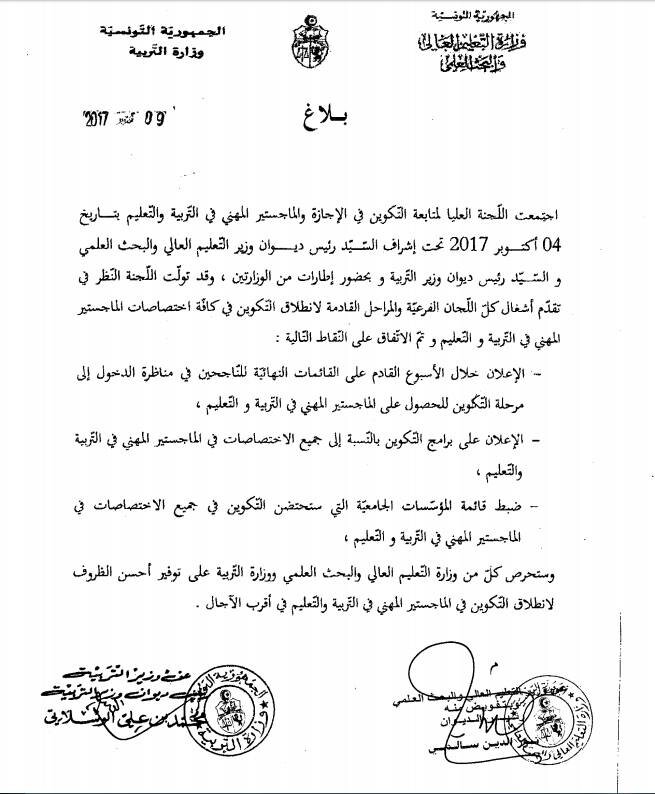 الجمهوريّة التّونسيّة
وزارة التّعليم العالي
والبحث العلمي
الجمهوريّة التّونسيّة
وزارة التّربية
بــلاغ
09 أكتوبر 2017
اجتمعت اللّجنة العليا لمتابعة التّكوين في الإجازة والماجستير المهني في التّربية والتّعليم بتــاريخ
04 أكتــوبر 2017 تحت إشراف السّيّد رئيس ديــوان وزير التّعليم العالي والبحث العلمي
و السّـيّد رئيس ديوان وزير التّربية و بحضور إطارات من الوزارتين ، وقد تولّت اللّجنة النّظر في
تقدّم أشغال كلّ اللّجان الفرعيّة والمراحل القادمة لانطلاق التّكوين في كافّة اختصاصات الماجستير
المهني في التّربية و التّعليم و تمّ الاتّفاق على النّقاط التّالية :
– الإعلان خلال الأسبوع القادم على القائمات النّهائيّة للنّاجحين في مناظرة الدخول إلى
مرحلة التّكوين للحصول على الماجستير المهني في التّربية و التّعليم ،
– الإعلان على برامج التّكوين بالنّسبة إلى جميع الاختصاصات في الماجستير المهني في التّربية
والتّعليم ،
– ضبط قائمة المؤسّسات الجامعيّة التي ستحتضن التّكوين في جميع الاختصاصات في
الماجستير المهني في التّربية و التّعليم ،
وستحرص كلّ من وزارة التّعليم العالي والبحث العلمي ووزارة التّربية على توفير أحسن الظروف
لانطلاق التّكوين في الماجستير المهني في التّربية والتّعليم في أقرب الآجال .
التعليم العالي والبحث العلمي
وبتفويض منه
الديوان
الدين سالمي
عن وزير التّربية
ديوان وزير التّربية
محمد بن علي
الجمهورية
وزارة التربية